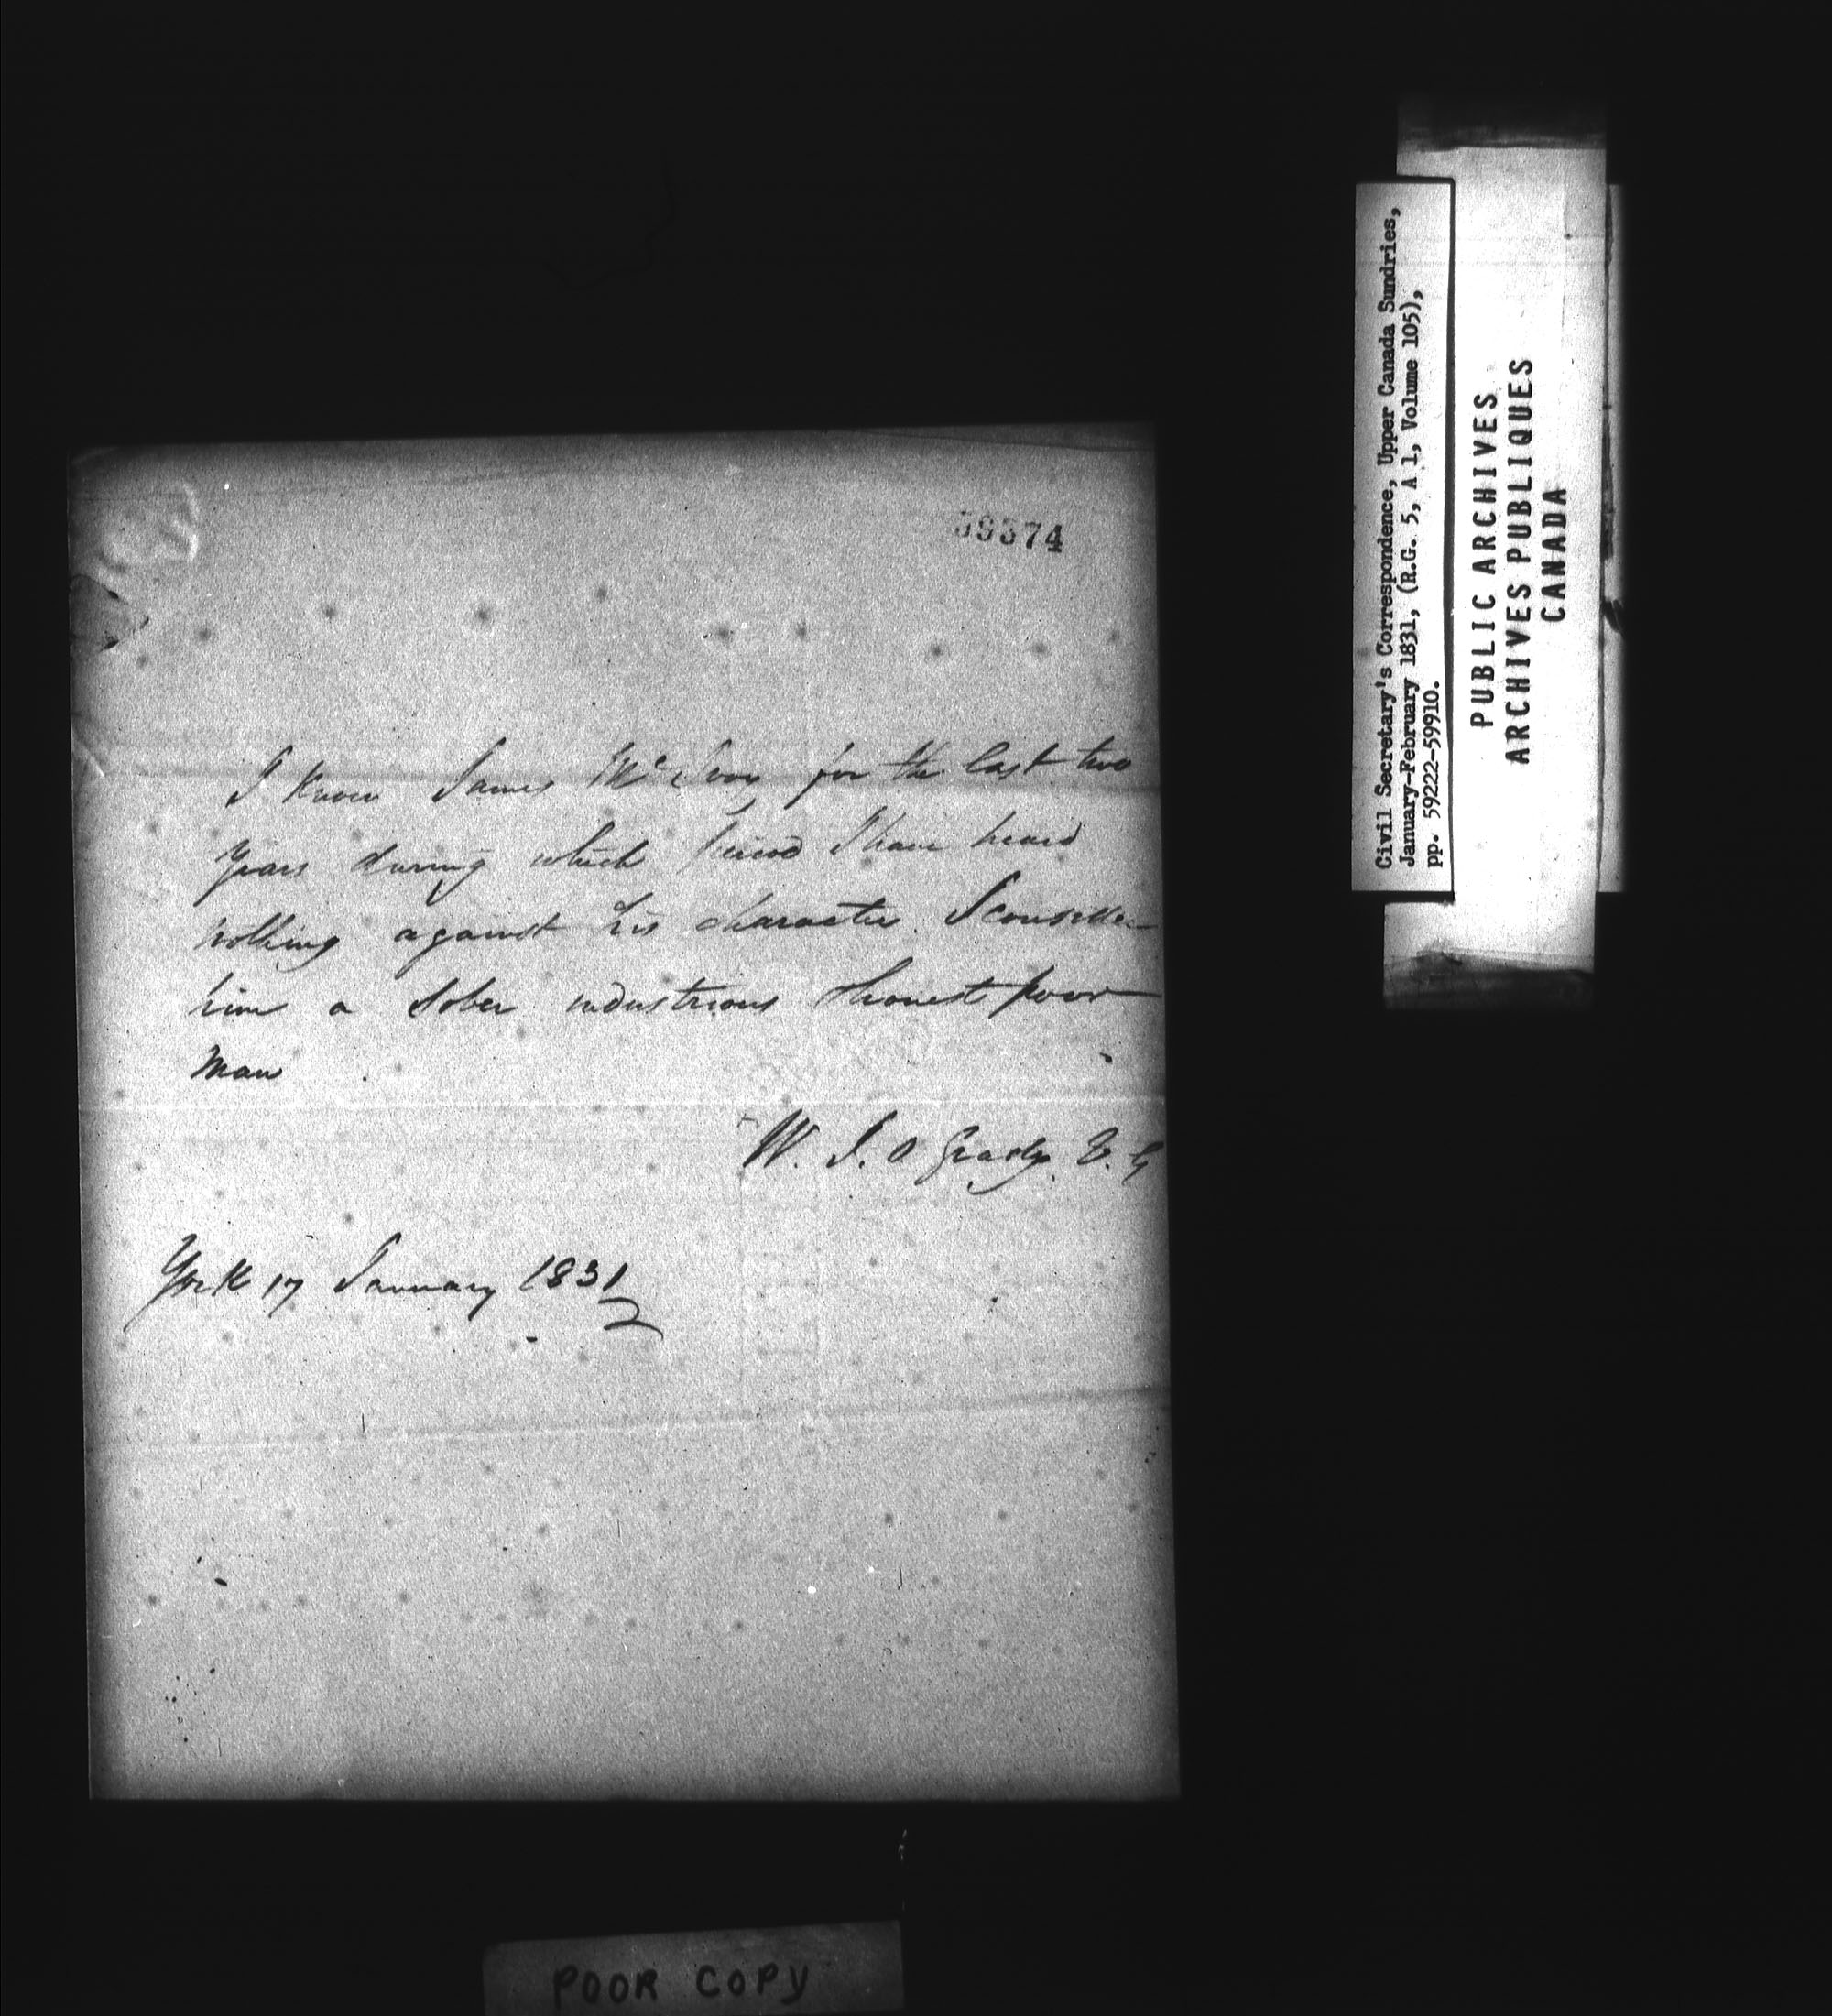 59374
I know James Mc Ivoy for the last two
years during which period I have heard
nothing against his character. I consider
him a sober industrious & honest poor
man
W. J. O Grady. V. G
York 17 January 1831
POOR COPY
Civil Secretary's Correspondence, Upper Canada Sundries,
January-February 1831, (R.G. 5, A 1, Volume 105),
pp. 59222-59910.
PUBLIC ARCHIVES
ARCHIVES PUBLIQUES
CANADA